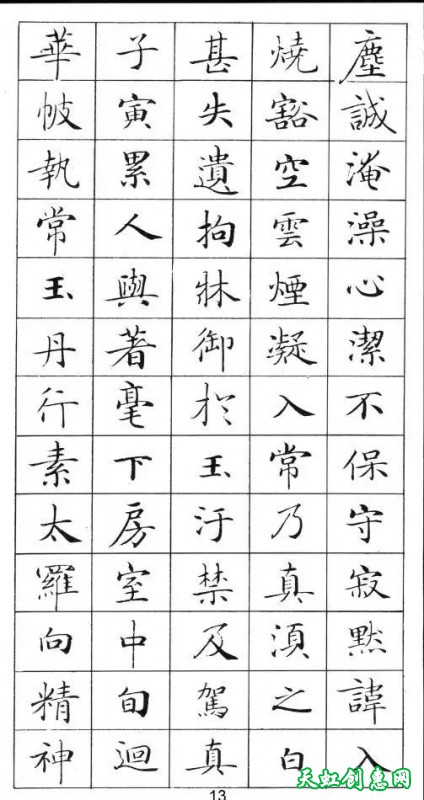 塵誠淹澡心潔不保守寂默諱入
燒豁空雲煙凝入常乃真湏之白
甚失遺拘牀御於玉汙禁及駕真
子寅累人與著毫下房室中旬迴
華帔執常玉丹行素太羅向精神
13
天虹创惠网